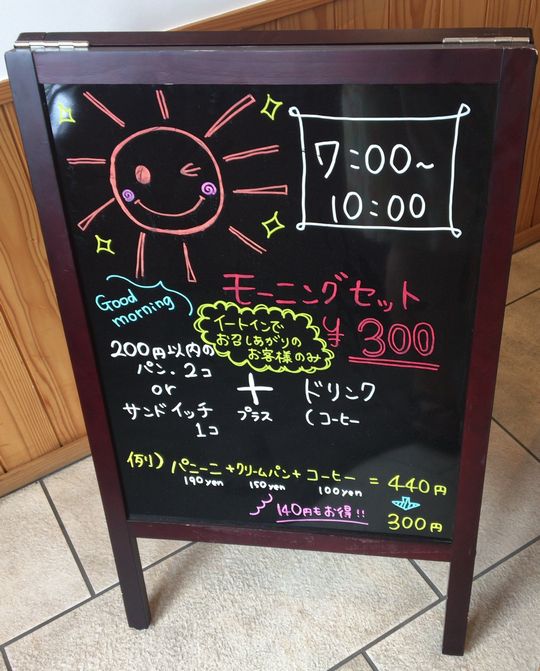 7:00~
10:00
Good
morning
モーニングセット
¥300
イートインで
おめしあがりの
お客様のみ
200円以内の
パン・2コ
or
サンドイッチ
1コ
+
プラス
ドリンク
(コーヒー
例り) パニーニ+クリームパン+コーヒー = 440円
190yen 150yen 100yen
140円もお得!!
300円